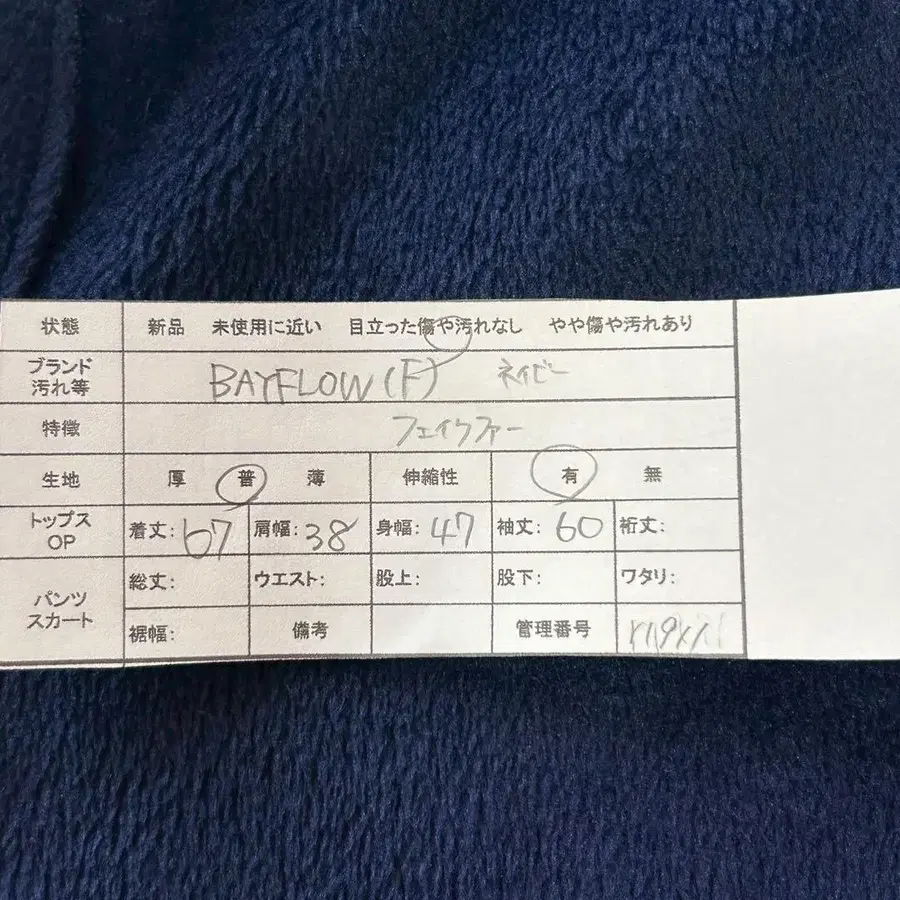 状態 新品 未使用に近い 目立った傷や汚れなし やや傷や汚れあり
ブランド
汚れ等 BAYFLOW (F) ネイビー
特徴 フェイクファー
生地 厚 普 薄 伸縮性 有 無
トップス
OP 着丈: 67 肩幅: 38 身幅: 47 袖丈: 60 裄丈:
パンツ
スカート 総丈: ウエスト: 股上: 股下: ワタリ:
裾幅: 備考 管理番号